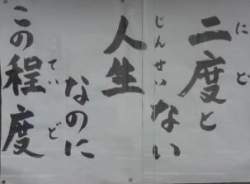 二度と
にど
ない
人生
じんせい
なのに
この程度
ていど